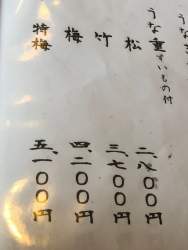 うな重 すいもの付
松 二、八〇〇円
竹 三、七〇〇円
梅 四、二〇〇円
特梅 五、一〇〇円